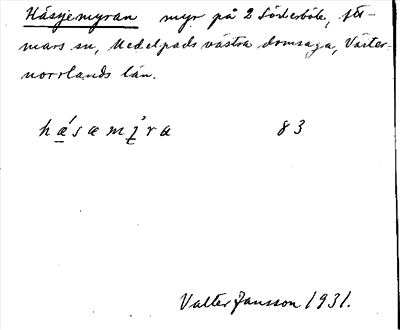 Håsjemyran myr på 2 Söderböle, Att-
mars sn, Medelpads västra domsaga, Väster-
norrlands län.
hǻsamy̆ra 83
Valter Jansson 1931.